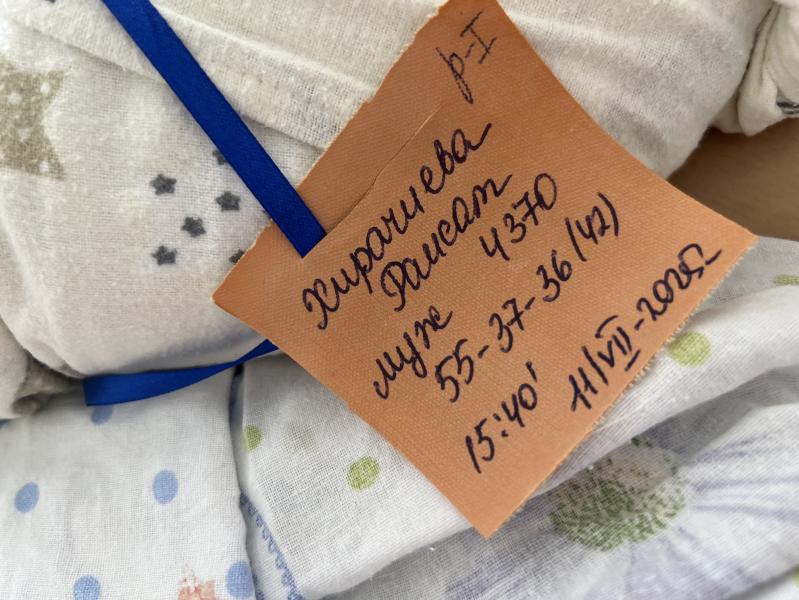 р-I
Хирачиева
Раисат
муж 4370
55-37-36 (42)
15:40' 11/VII-2025